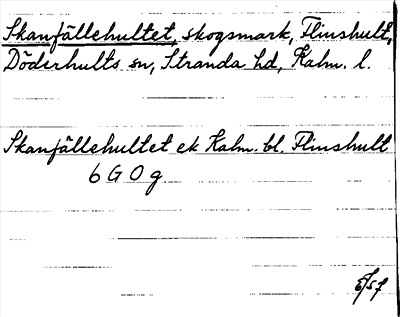 Skanfällehultet, skogsmark, Flinshult,
Döderhults sn, Stranda hd, Kalm. l.
Skanfällehultet ek Kalm. bl. Flinshult
6 G O g